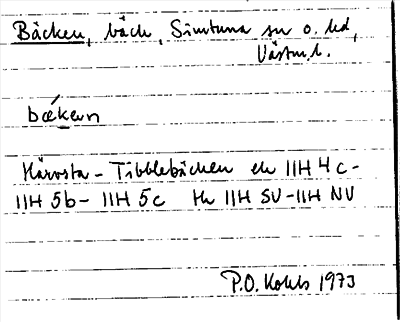 Bäcken, bäck, Simtuna sn o. hd,
Västm.l.
bæ̀kɐn
Härvsta - Tibblebäcken ek 11H 4c-
11H 5b- 11H 5c tk 11H SV-11H NV
P.O. Kohls 1973